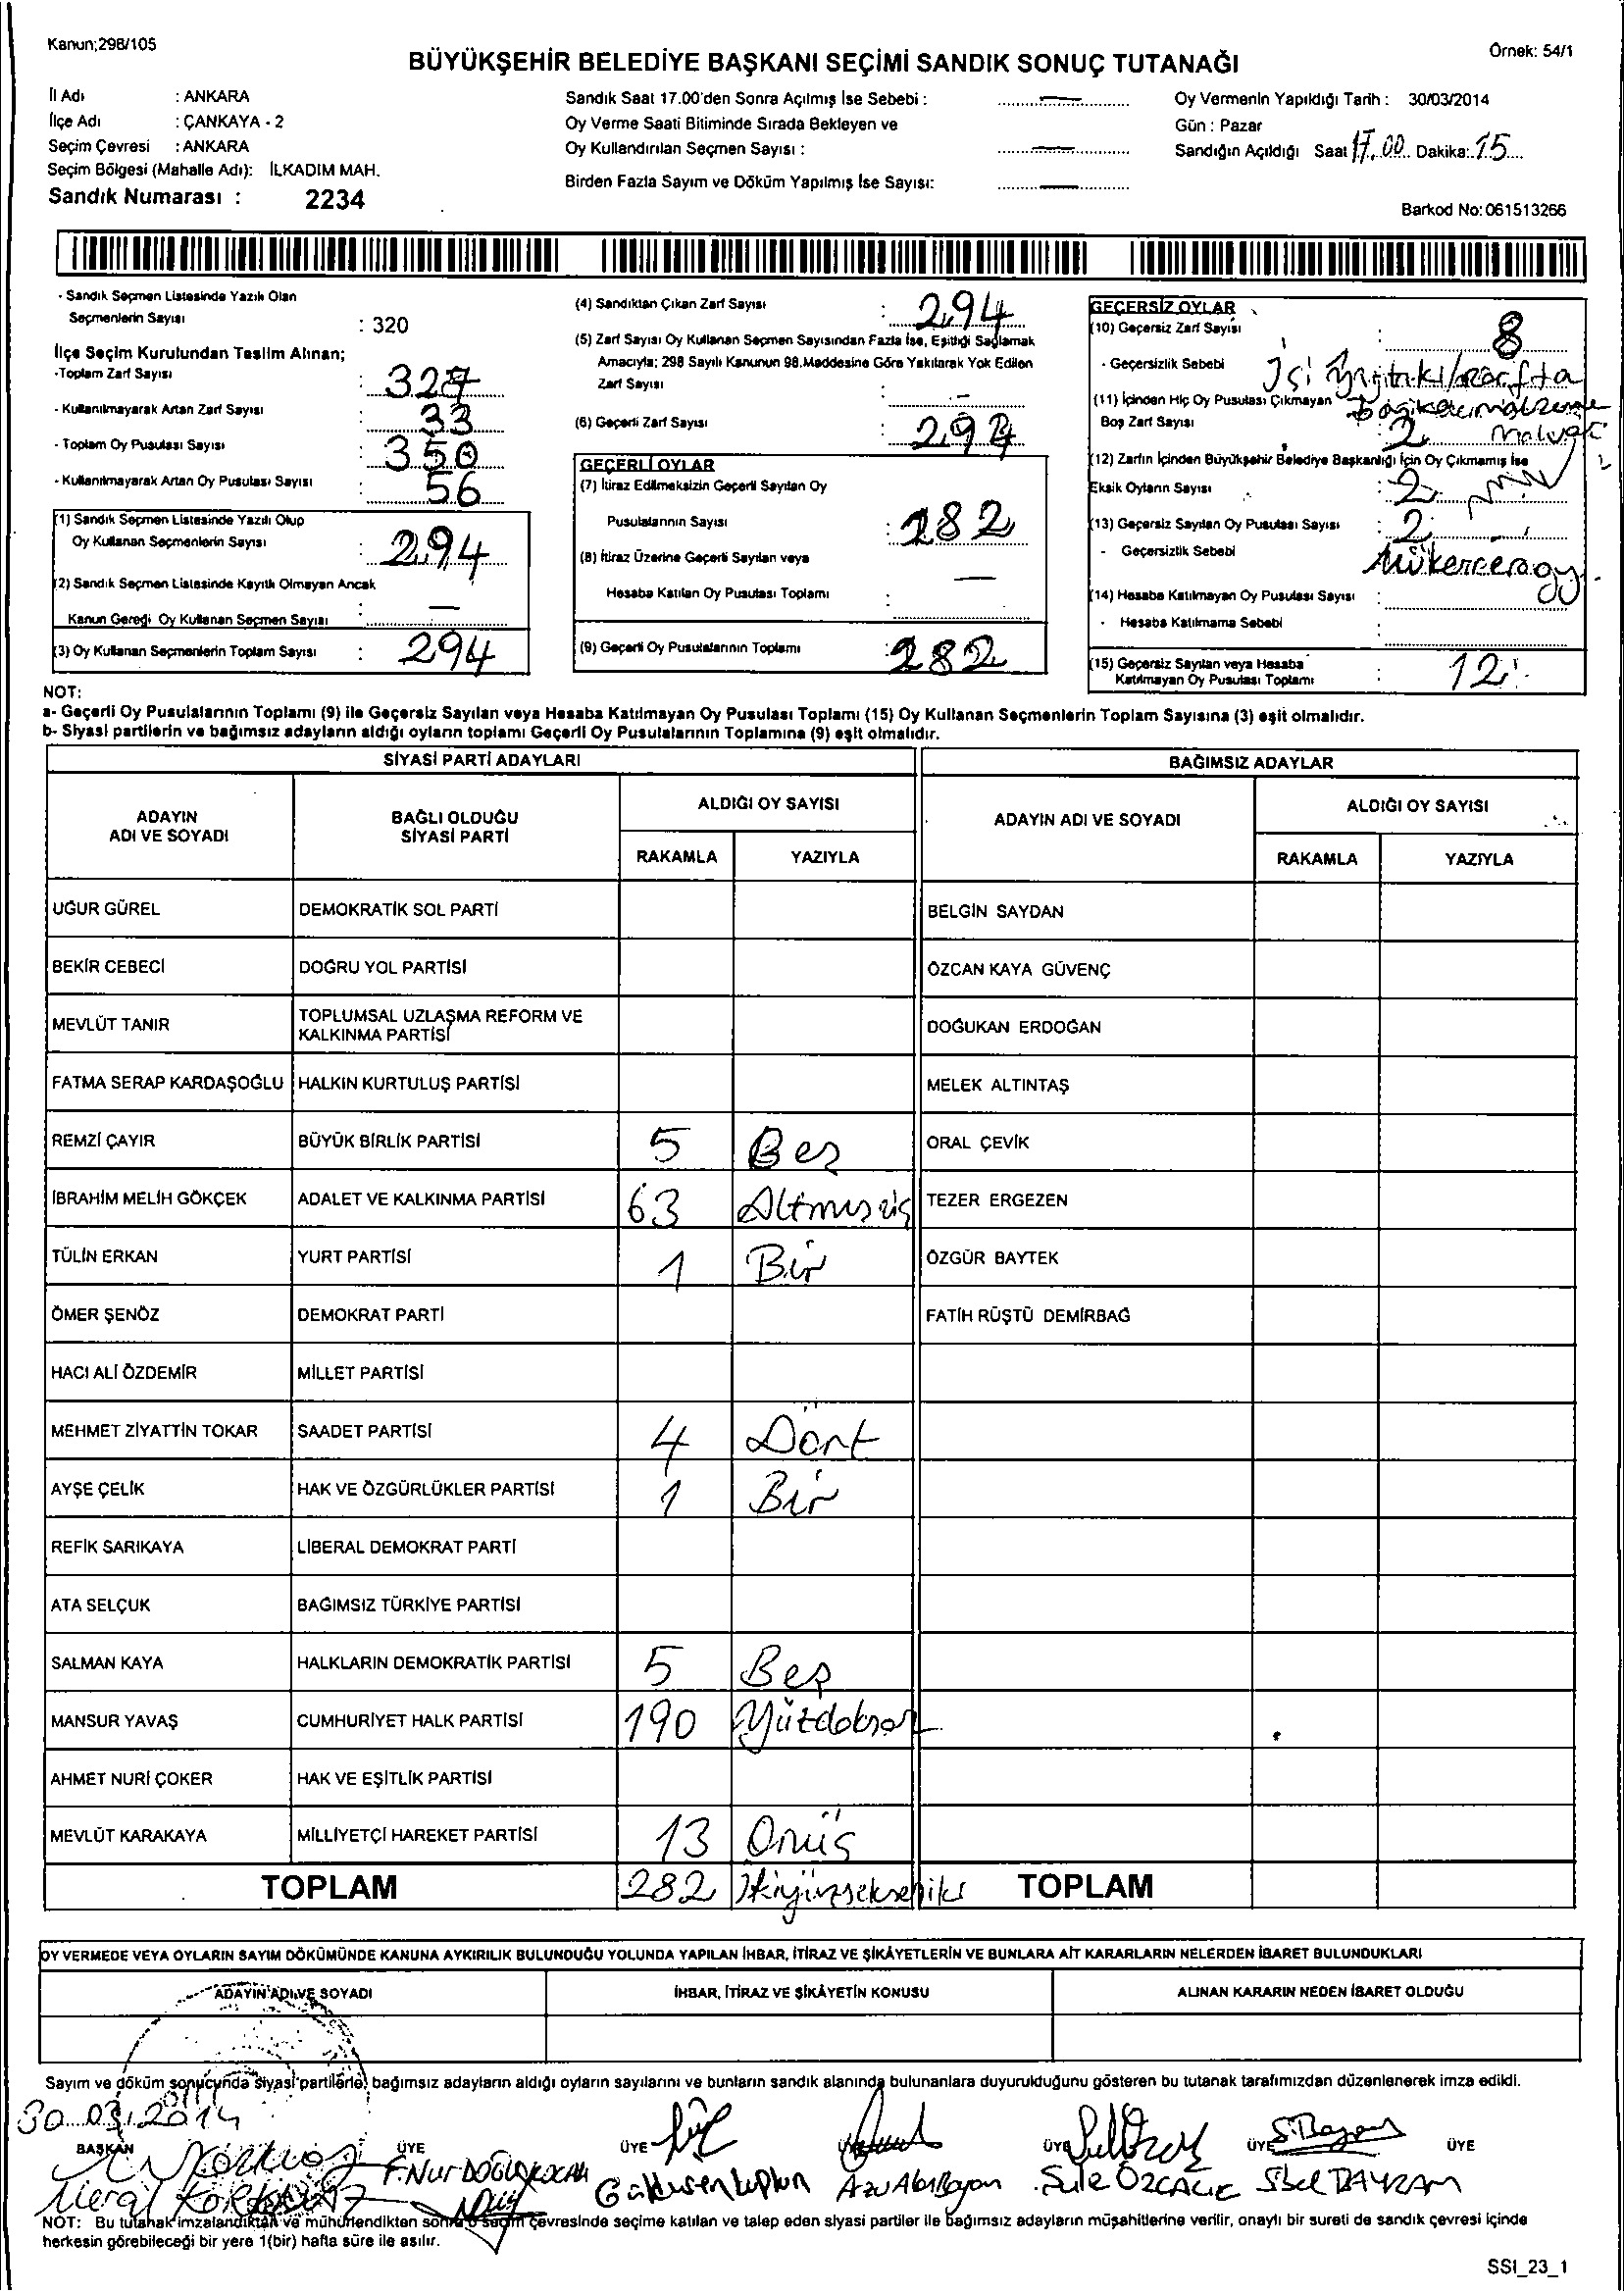 Kanun;298/105
Örnek: 54/1
BÜYÜKŞEHİR BELEDİYE BAŞKANI SEÇİMİ SANDIK SONUÇ TUTANAĞI
İl Adı : ANKARA
İlçe Adı : ÇANKAYA - 2
Seçim Çevresi : ANKARA
Seçim Bölgesi (Mahalle Adı): İLKADIM MAH.
Sandık Numarası : 2234
Sandık Saat 17.00'den Sonra Açılmış İse Sebebi : —
Oy Verme Saati Bitiminde Sırada Bekleyen ve
Oy Kullandırılan Seçmen Sayısı : —
Birden Fazla Sayım ve Döküm Yapılmış İse Sayısı: —
Oy Vermenin Yapıldığı Tarih : 30/03/2014
Gün : Pazar
Sandığın Açıldığı Saat 17.00 Dakika: 15
Barkod No: 061513266
- Sandık Seçmen Listesinde Yazılı Olan
Seçmenlerin Sayısı : 320
İlçe Seçim Kurulundan Teslim Alınan;
-Toplam Zarf Sayısı : 327
- Kullanılmayarak Artan Zarf Sayısı : 33
- Toplam Oy Pusulası Sayısı : 350
- Kullanılmayarak Artan Oy Pusulası Sayısı : 56
(1) Sandık Seçmen Listesinde Yazılı Olup
Oy Kullanan Seçmenlerin Sayısı : 294
(2) Sandık Seçmen Listesinde Kayıtlı Olmayan Ancak
Kanun Gereği Oy Kullanan Seçmen Sayısı : —
(3) Oy Kullanan Seçmenlerin Toplam Sayısı : 294
(4) Sandıktan Çıkan Zarf Sayısı : 294
(5) Zarf Sayısı Oy Kullanan Seçmen Sayısından Fazla İse, Eşitliği Sağlamak
Amacıyla; 298 Sayılı Kanunun 98.Maddesine Göre Yakılarak Yok Edilen
Zarf Sayısı : —
(6) Geçerli Zarf Sayısı : 294
GEÇERLİ OYLAR
(7) İtiraz Edilmeksizin Geçerli Sayılan Oy
Pusulalarının Sayısı : 282
(8) İtiraz Üzerine Geçerli Sayılan veya
Hesaba Katılan Oy Pusulası Toplamı : —
(9) Geçerli Oy Pusulalarının Toplamı : 282
GEÇERSİZ OYLAR
(10) Geçersiz Zarf Sayısı : 8
- Geçersizlik Sebebi
(11) İçinden Hiç Oy Pusulası Çıkmayan
Boş Zarf Sayısı : 2
(12) Zarfın İçinden Büyükşehir Belediye Başkanlığı İçin Oy Çıkmamış İse
Eksik Oyların Sayısı : 2
(13) Geçersiz Sayılan Oy Pusulası Sayısı : 2
- Geçersizlik Sebebi
(14) Hesaba Katılmayan Oy Pusulası Sayısı :
- Hesaba Katılmama Sebebi :
(15) Geçersiz Sayılan veya Hesaba
Katılmayan Oy Pusulası Toplamı : 12
NOT:
a- Geçerli Oy Pusulalarının Toplamı (9) ile Geçersiz Sayılan veya Hesaba Katılmayan Oy Pusulası Toplamı (15) Oy Kullanan Seçmenlerin Toplam Sayısına (3) eşit olmalıdır.
b- Siyasi partilerin ve bağımsız adayların aldığı oyların toplamı Geçerli Oy Pusulalarının Toplamına (9) eşit olmalıdır.
SİYASİ PARTİ ADAYLARI BAĞIMSIZ ADAYLAR
ADAYIN ADI VE SOYADI BAĞLI OLDUĞU SİYASİ PARTİ ALDIĞI OY SAYISI ADAYIN ADI VE SOYADI ALDIĞI OY SAYISI
RAKAMLA YAZIYLA RAKAMLA YAZIYLA
UĞUR GÜREL DEMOKRATİK SOL PARTİ BELGİN SAYDAN
BEKİR CEBECİ DOĞRU YOL PARTİSİ ÖZCAN KAYA GÜVENÇ
MEVLÜT TANIR TOPLUMSAL UZLAŞMA REFORM VE KALKINMA PARTİSİ DOĞUKAN ERDOĞAN
FATMA SERAP KARDAŞOĞLU HALKIN KURTULUŞ PARTİSİ MELEK ALTINTAŞ
REMZİ ÇAYIR BÜYÜK BİRLİK PARTİSİ 5 Beş ORAL ÇEVİK
İBRAHİM MELİH GÖKÇEK ADALET VE KALKINMA PARTİSİ 63 Altmışüç TEZER ERGEZEN
TÜLİN ERKAN YURT PARTİSİ 1 Bir ÖZGÜR BAYTEK
ÖMER ŞENÖZ DEMOKRAT PARTİ FATİH RÜŞTÜ DEMİRBAĞ
HACI ALİ ÖZDEMİR MİLLET PARTİSİ
MEHMET ZİYATTİN TOKAR SAADET PARTİSİ 4 Dört
AYŞE ÇELİK HAK VE ÖZGÜRLÜKLER PARTİSİ 1 Bir
REFİK SARIKAYA LİBERAL DEMOKRAT PARTİ
ATA SELÇUK BAĞIMSIZ TÜRKİYE PARTİSİ
SALMAN KAYA HALKLARIN DEMOKRATİK PARTİSİ 5 Beş
MANSUR YAVAŞ CUMHURİYET HALK PARTİSİ 190 Yüzdoksan
AHMET NURİ ÇOKER HAK VE EŞİTLİK PARTİSİ
MEVLÜT KARAKAYA MİLLİYETÇİ HAREKET PARTİSİ 13 Onüç
TOPLAM 282 İkiyüzsekseniki TOPLAM
OY VERMEDE VEYA OYLARIN SAYIM DÖKÜMÜNDE KANUNA AYKIRILIK BULUNDUĞU YOLUNDA YAPILAN İHBAR, İTİRAZ VE ŞİKÂYETLERİN VE BUNLARA AİT KARARLARIN NELERDEN İBARET BULUNDUKLARI
ADAYIN ADI VE SOYADI İHBAR, İTİRAZ VE ŞİKÂYETİN KONUSU ALINAN KARARIN NEDEN İBARET OLDUĞU
Sayım ve döküm sonucunda siyasi partilerle, bağımsız adayların aldığı oyların sayılarını ve bunların sandık alanında bulunanlara duyurulduğunu gösteren bu tutanak tarafımızdan düzenlenerek imza edildi.
30.03.2014
BAŞKAN ÜYE ÜYE ÜYE ÜYE ÜYE ÜYE
Meral Korkmaz F.Nur Şule ÖZÇELİK Sibel BAYRAM
NOT: Bu tutanak imzalandıktan ve mühürlendikten sonra o seçim çevresinde seçime katılan ve talep eden siyasi partiler ile bağımsız adayların müşahitlerine verilir, onaylı bir sureti de sandık çevresi içinde
herkesin görebileceği bir yere 1(bir) hafta süre ile asılır.
SSI_23_1